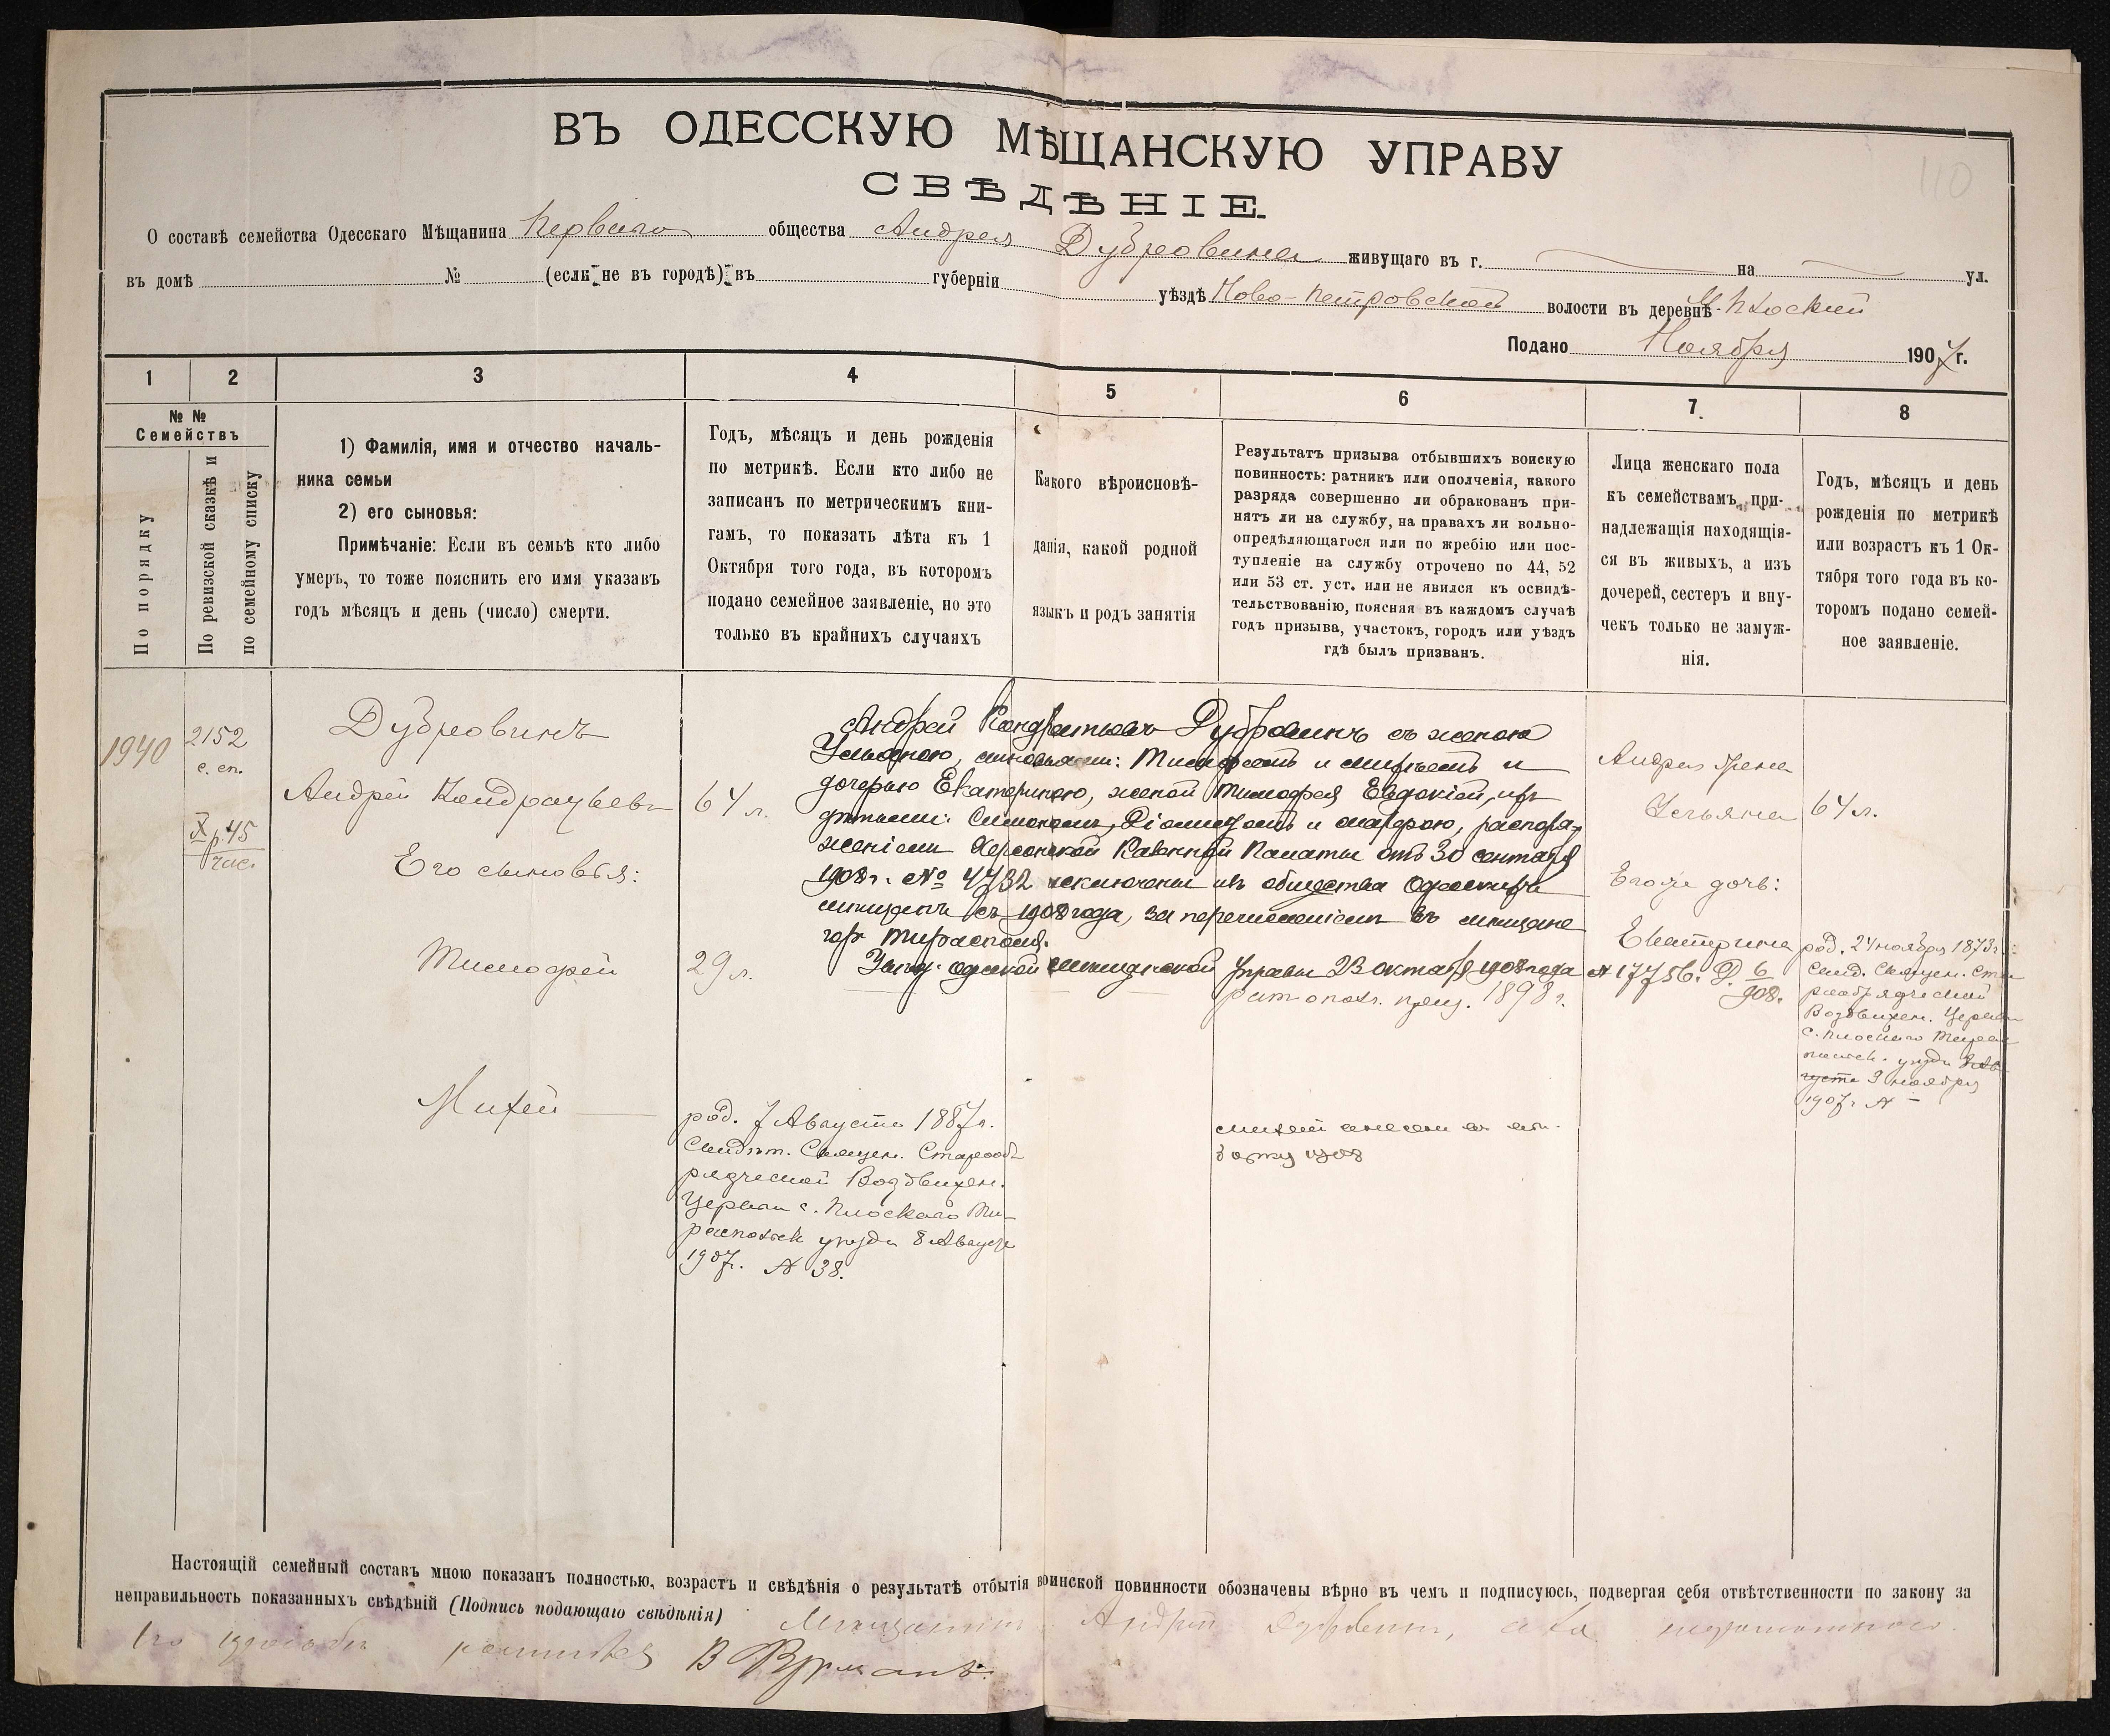 110
ВЪ ОДЕССКУЮ МѢЩАНСКУЮ УПРАВУ
СВѢДѢНІЕ
О составѣ семейства Одесскаго Мѣщанина Перваго общества Андрея Дубровина живущаго въ г. на ул.
въ домѣ № (если не въ городѣ) въ губерніи уѣздѣ Ново-Петровской волости въ деревнѣ Плоской
Подано Ноября 1907 г.
1 2 3 4 5 6 7. 8
№ № Семействъ
По порядку
По ревизской сказкѣ и по семейному списку
1) Фамилія, имя и отчество началь-
ника семьи
2) его сыновья:
Примѣчаніе: Если въ семьѣ кто либо
умеръ, то тоже пояснить его имя указавъ
годъ мѣсяцъ и день (число) смерти.
Годъ, мѣсяцъ и день рожденія
по метрикѣ. Если кто либо не
записанъ по метрическимъ кни-
гамъ, то показать лѣта къ 1
Октября того года, въ которомъ
подано семейное заявленіе, но это
только въ крайнихъ случаяхъ
Какого вѣроисповѣ-
данія, какой родной
языкъ и родъ занятія
Результатъ призыва отбывшихъ воискую
повинность: ратникъ или ополченія, какого
разряда совершенно ли обракованъ при-
нятъ ли на службу, на правахъ ли вольно-
опредѣляющагося или по жребію или пос-
тупленіе на службу отрочено по 44, 52
или 53 ст. уст. или не явился къ освидѣ-
тельствованію, поясняя въ каждомъ случаѣ
годъ призыва, участокъ, городъ или уѣздъ
гдѣ былъ призванъ.
Лица женскаго пола
къ семействамъ при-
надлежащія находящія-
ся въ живыхъ, а изъ
дочерей, сестеръ и вну-
чекъ только не замуж-
нія.
Годъ, мѣсяцъ и день
рожденія по метрикѣ
или возрастъ къ 1 Ок-
тября того года въ ко-
торомъ подано семей-
ное заявленіе.
1940
2152
с. сп.
X р. 45
част.
Дубровинъ
Андрей Кондратьевъ
Его сыновья:
Тимофей
Михей
64 л.
29 л.
род. 7 Августа 1887 г.
Свидѣт. Священ. Старооб-
рядческой Воздвижен.
Церкви с. Плоскаго Ти-
распольск уѣзда 8 Августа
1907 г. № 38.
Андрей Кондратьевъ Дубровинъ съ женою
Ульяною, сыновьями: Тимофеемъ и Михеемъ и
дочерью Екатериною, женой Тимофея Евдокіей, ихъ
дѣтьми: Симономъ, Діомидомъ и распоря-
женіемъ Херсонской Казенной Палаты отъ 30 сентября
1908 г. № 4732 исключены изъ общества Одесскихъ
мѣщанъ съ 1908 года, за перечисленіемъ въ мѣщане
гор. Тирасполя.
Одесской мѣщанской Управы 23 октября 1908 года № 17756. Д. 6/908.
рат опол. приз. 1898 г.
Михей внесен в
1908
Андрея жена
Ульяна
64 л.
Его же дочь:
Екатерина
род. 24 ноября 1873 г.
Свид. Священ. Ста-
рообрядческой
Воздвижен. Церкви
с. Плоскаго Тирас-
польск. уѣзда Ав-
густа 9 ноября
1907 г. № —
Настоящій семейный составъ мною показанъ полностью, возрастъ и свѣдѣнія о результатѣ отбытія воинской повинности обозначены вѣрно въ чемъ и подписуюсь, подвергая себя отвѣтственности по закону за
неправильность показанныхъ свѣдѣній (Подпись подающаго свѣдѣнія) Мѣщанинъ Андрей Дубровинъ, а за неграмотнаго
по его просьбѣ росписался В